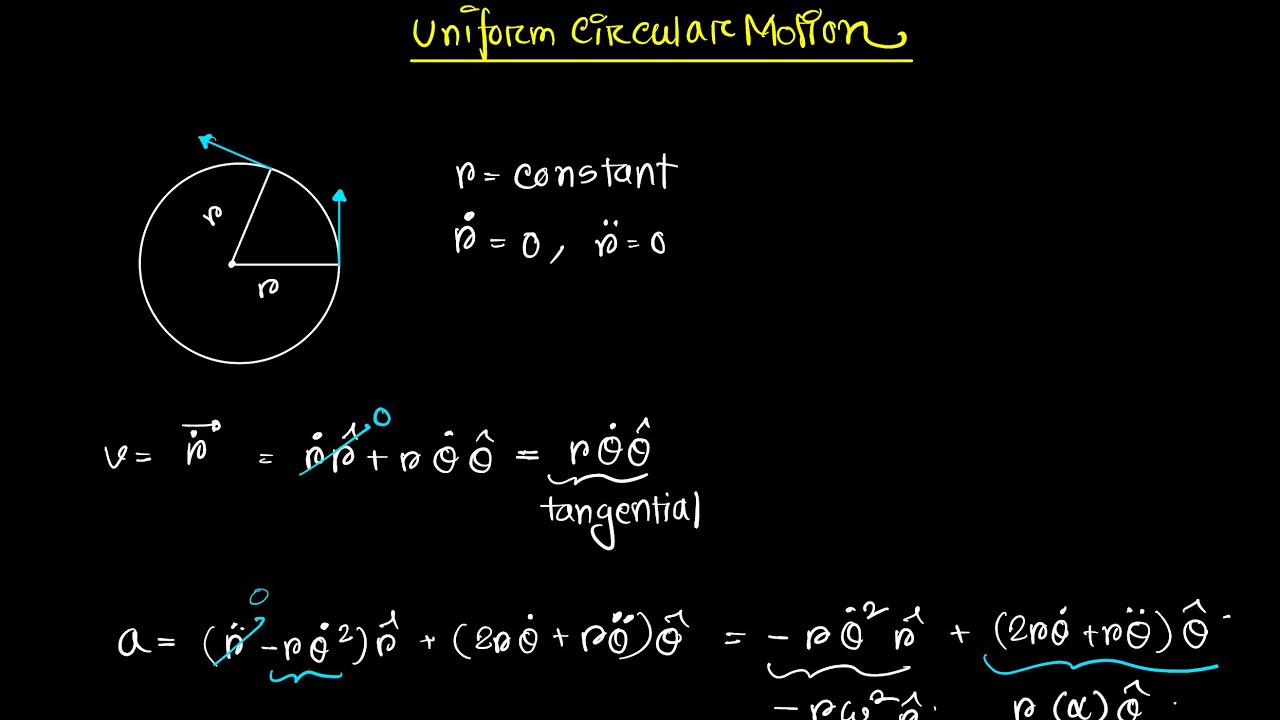 Uniform Circular Motion
r = constant
ṙ = 0, r̈ = 0
r
r
0
v = ṙ⃗ = ṙr̂ + rθ̇θ̂ = rθ̇θ̂
tangential
0
a = (r̈ - rθ̇²)r̂ + (2rθ̇ + rθ̈)θ̂ = - rθ̇²r̂ + (2rθ̇ + rθ̈)θ̂
- rω²r̂ r(α)θ̂